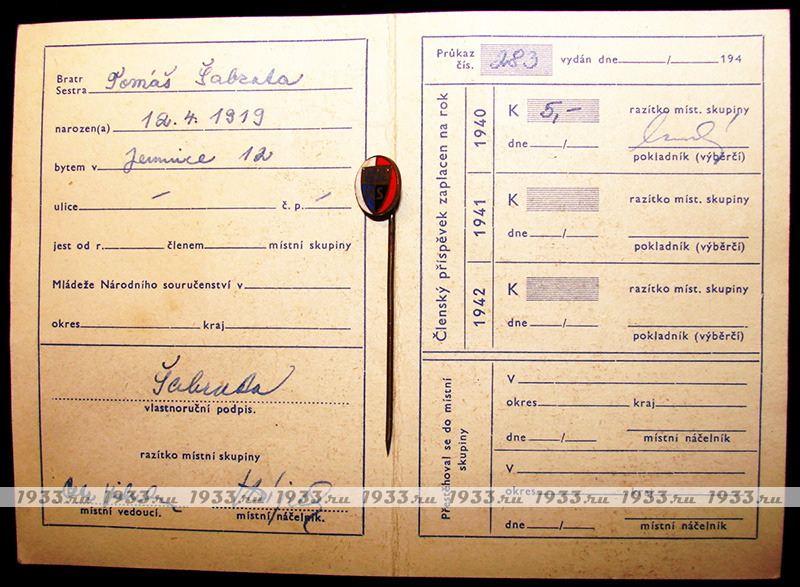 Bratr
Sestra Tomáš Šabrata
narozen(a) 12. 4. 1919
bytem v 12
ulice – č. p. –
jest od r. členem místní skupiny
Mládeže Národního souručenství v
okres kraj
vlastnoruční podpis.
razítko místní skupiny
místní vedoucí. místní náčelník.
Průkaz
čís. 283 vydán dne / 194
Členský příspěvek zaplacen na rok
1940
K 5,– razítko míst. skupiny
dne /
pokladník (výběrčí)
1941
K razítko míst. skupiny
dne /
pokladník (výběrčí)
1942
K razítko míst. skupiny
dne /
pokladník (výběrčí)
Přestěhoval se do místní
skupiny
V
okres kraj
dne / místní náčelník
V
okres kraj
dne / místní náčelník
S
1933.ru 1933.ru 1933.ru 1933.ru 1933.ru 1933.ru 1933.ru 1933.ru 1933.ru